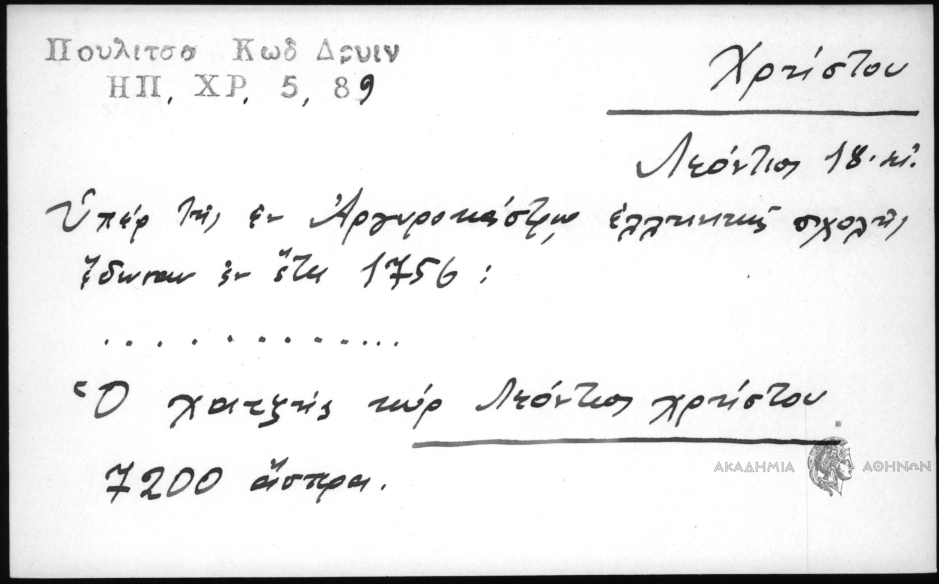 Πουλιτσα Κωδ Δρυιν
ΗΠ. ΧΡ. 5, 89
Χρήστου
Λεόντιος 18. αἰ.
Ὑπέρ τῆς ἐν Ἀργυροκάστρῳ ἑλληνικῆς σχολῆς
ἔδωκαν ἐν ἔτει 1756 :
. . . . . . . . . . . . . .
Ὁ χατζῆς κύρ Λεόντιος χρήστου
7200 ἄσπρα.
ΑΚΑΔΗΜΙΑ ΑΘΗΝΩΝ